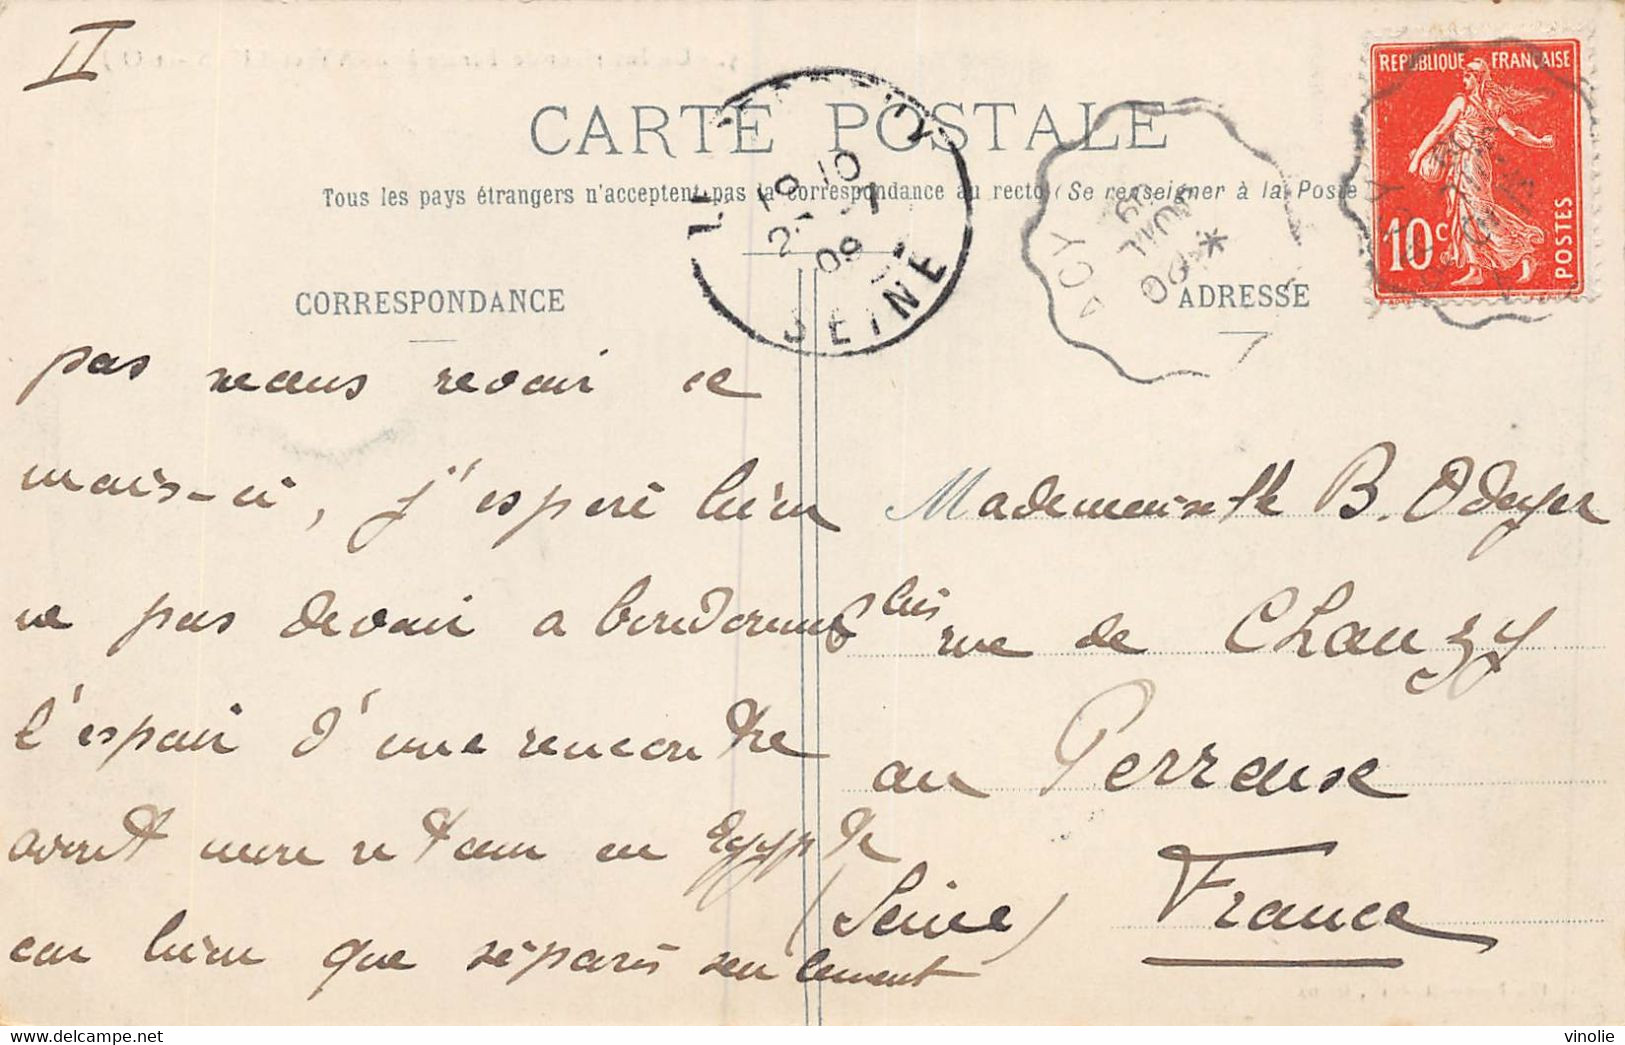 II
CARTE POSTALE
Tous les pays étrangers n'acceptent pas la correspondance au recto (Se renseigner à la Poste
CORRESPONDANCE
ADRESSE
REPUBLIQUE FRANÇAISE
10c
POSTES
LE PERREUX
18 10
09
SEINE
ACY
JUIL
09
pas nous revoir ce
mois-ci, j'espère bien
ne pas devoir abandonner
l'espoir d'une rencontre
avant mon retour en Egypte
car bien que séparés seulement
Mademoiselle B. Odeyer
6 bis rue de Chanzy
au Perreux
(Seine) France
vinolie